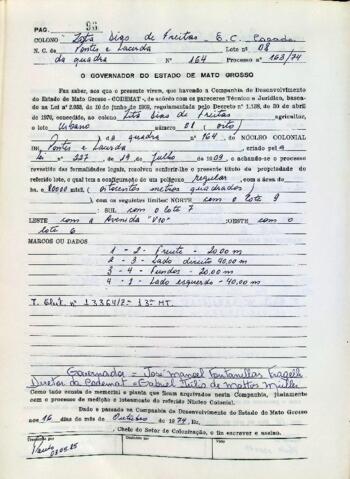 PAG. 96
COLONO Zita Dias de Freitas E.C. Casada
N. C. de Pontes e Lacerda Lote nº 08
da quadra Nº 164 Processo nº 163/74
O GOVERNADOR DO ESTADO DE MATO GROSSO
Faz saber, aos que o presente virem, que havendo a Companhia de Desenvolvimento
do Estado de Mato Grosso - CODEMAT -, de acôrdo com os pareceres Técnico e Jurídico, basea-
do na Lei nº 2.933, de 10 de junho de 1969, regulamentada pelo Decreto nº 1.138, de 20 de abril
de 1970, concedido, ao colono Zita Dias de Freitas agricultor,
o lote Urbano número 08 (oito)
da quadra nº 164, do NÚCLEO COLONIAL
DE Pontes e Lacerda, criado pela
Lei nº 227, de 19 de Julho de 1909, e achando-se o processo
revestido das formalidades legais, resolveu conferir-lhe o presente título de propriedade do
referido lote, o qual tem a configuração de um polígono regular com a área de
ha. 800,00 mts2 (oitocentos metros quadrados)
), com os seguintes limites: NORTE com o lote 9
: SUL com o lote 7
LESTE com a Avenida "V10" :OESTE com o
lote 6
MARCOS OU DADOS
1 - 2 - Frente - 20,00 m
2 - 3 - Lado direito 40,00 m
3 - 4 - Fundos - 20,00 m
4 - 1 - Lado esquerdo - 40,00 m
Governador = José Manoel Fontanillas Fragelli
Diretor da Codemat = Gabriel Júlio de Mattos Müller
Como tudo consta do memorial e planta que ficam arquivados nesta Companhia, juntamente
com o processo de medição e loteamento do referido Núcleo Colonial.
Dado e passado na Companhia de Desenvolvimento do Estado do Mato Grosso
aos 16 dias do mês de Outubro de 1974. Eu,
, Chefe do Setor de Colonização, o fiz escrever e assino.